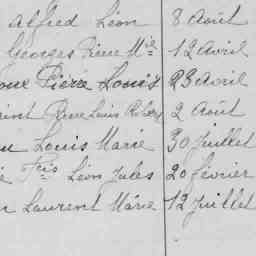 Alfred Léon 8 Août
Georges Pierre Mie 12 Avril
Pierre Louis 23 Avril
Pierre Louis Robert 2 Août
Louis Marie 30 Juillet
Fois Léon Jules 20 février
Laurent Marie 12 Juillet